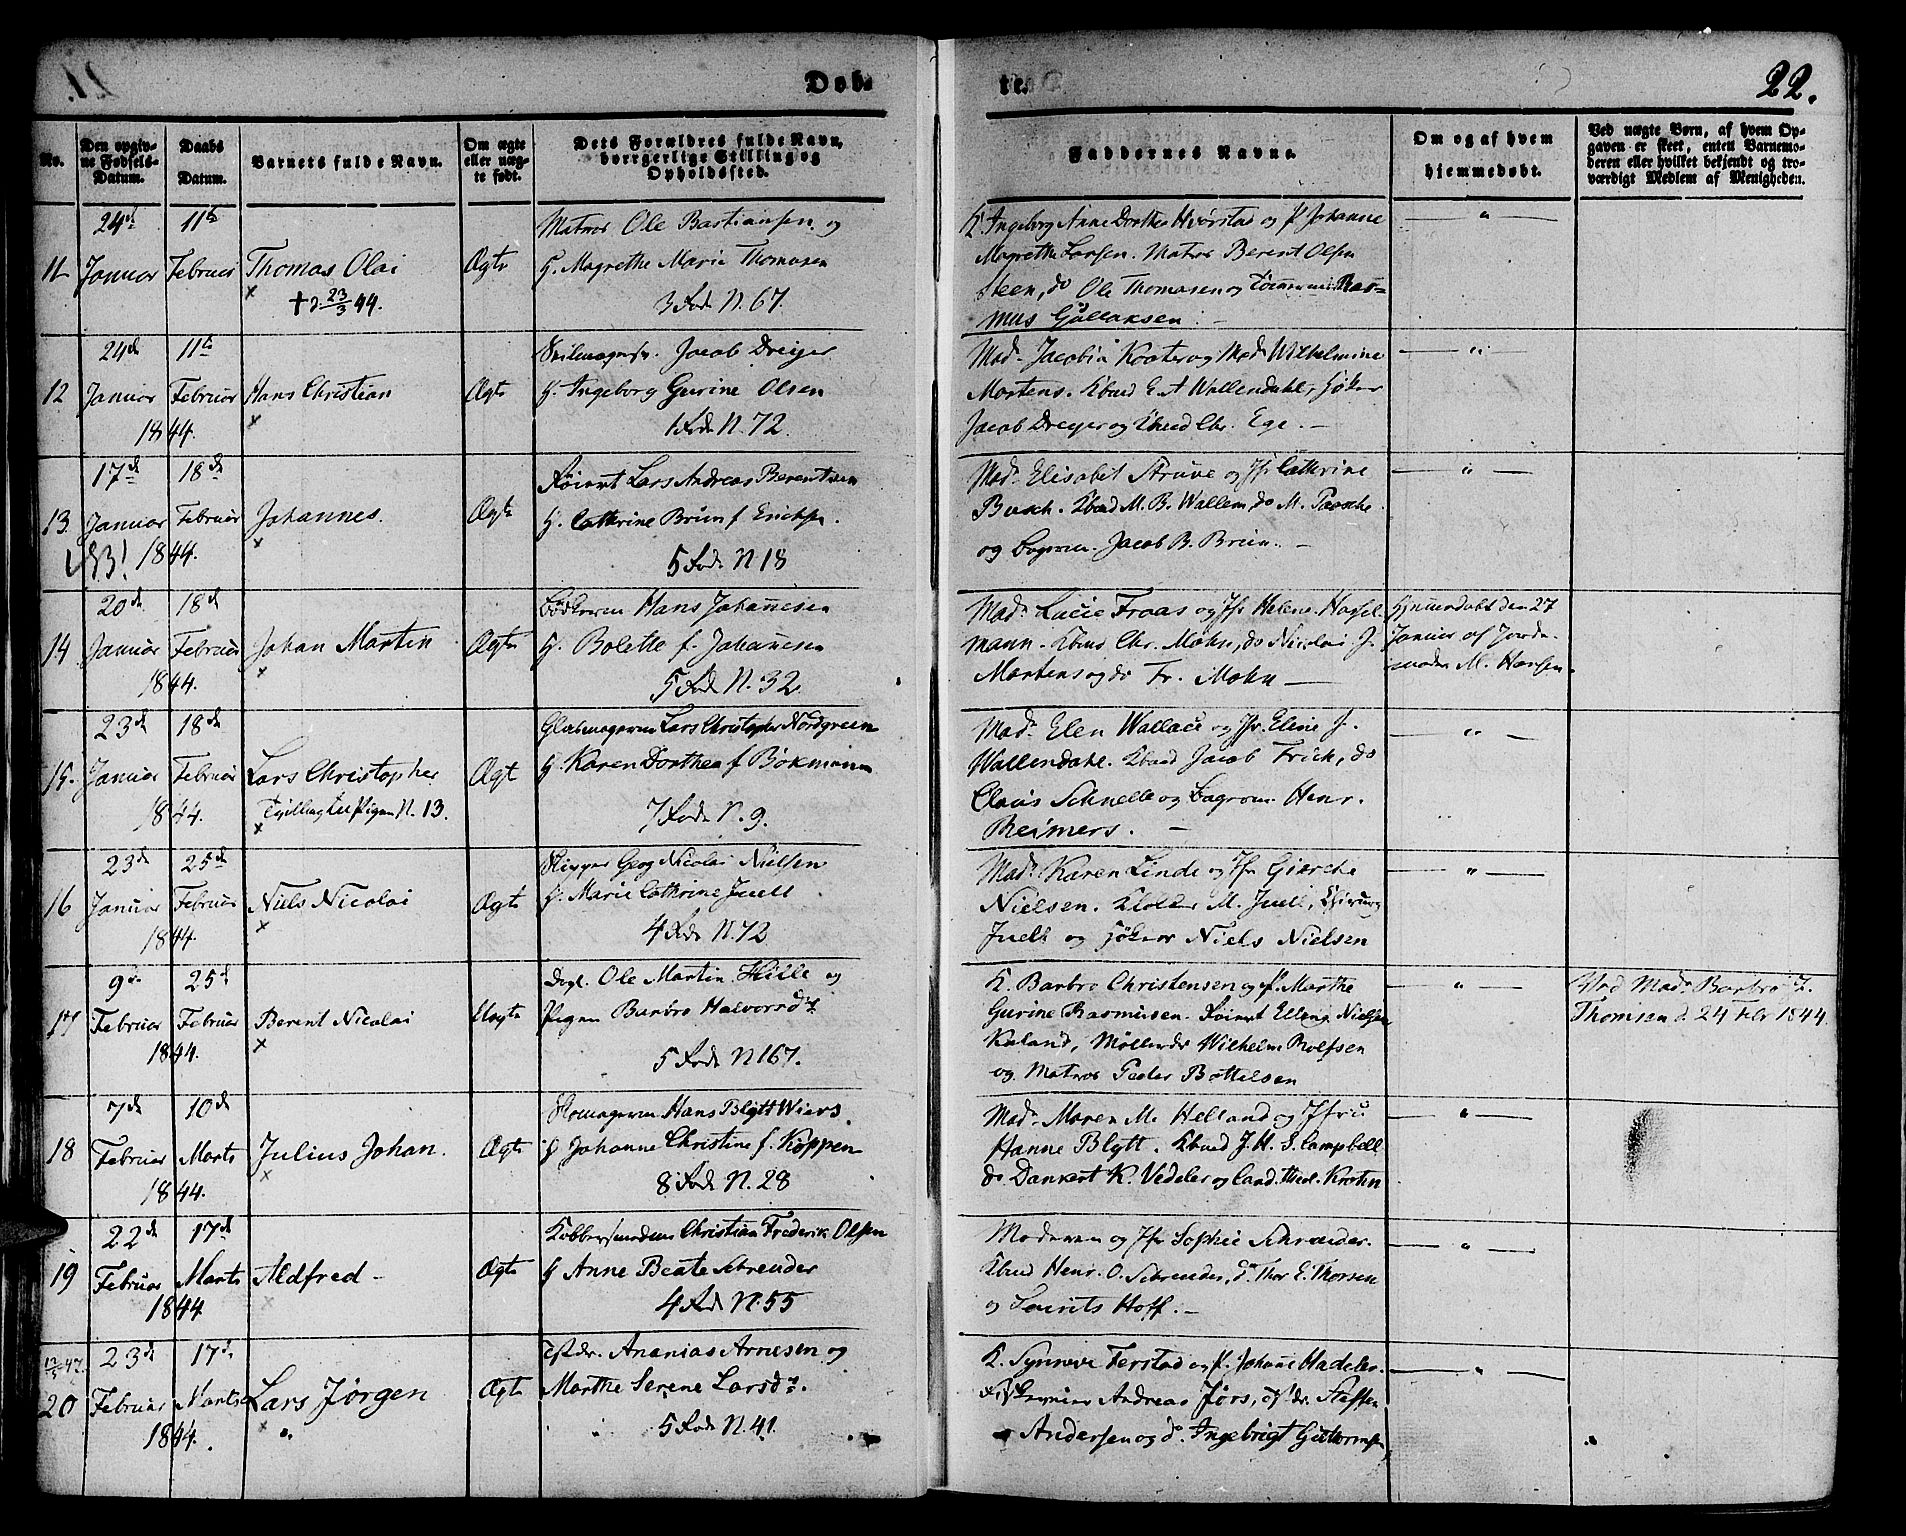 Døb-
te.
22.
No.
Den opgiv-
ne Fødsels-
Datum.
Daabs
Datum.
Barnets fulde Navn.
Om ægte
eller uæg-
te født.
Dets Forældres fulde Navn,
borgerlige Stilling og
Opholdssted.
Faddernes Navne.
Om og af hvem
hjemmedøbt.
Ved uægte Børn, af hvem Op-
gaven er skeet, enten Barnemo-
deren eller hvilket bekjendt og tro-
værdigt Medlem af Menigheden.
11
24de Januar
11te Februar
Thomas Olai
× † d. 23/3 44.
Ægte
Matros Ole Bastiansen og
H. Magrethe Marie Thomasen
3 Rode N. 67.
K. Ingeborg Anne Dorthea Hvørstad og P. Johanne
Magrethe Larsen. Matros Berent Olsen
Steen, do Ole Thomasen og Tømmermd Ras-
mus Gullaksen. –
— " —
12
24de Januar
11te Februar
1844.
Hans Christian
×
Ægte
Jacob Dreyer
H. Ingeborg Gurine Olsen
1 Rode N. 72.
Mad. Jacobia Koster og Mad. Wilhelmine
Mortens. Kbmd E. A Wallendahl,
Jacob Dreyer og Chr. Ege. –
— " —
13.
17de Januar
18de Februar
1844.
Johannes.
×
Ægte
Lars Andreas Berentsen
H. Cathrine Brun f. Ericksen
5 Rode N 18
Mad. Elisabet Struve og Jfr Cathrine
Busch. Kbmd M. B. Wallem, do M. Paasche
og Bagersv. Jacob B. Brun. –
— " —
14
20de Januar
18de Februar
1844.
Johan Martin
×
Ægte
Bødkersv Hans Johannesen
H. Bolette f. Johannesen
5 Rode N. 32.
Mad. Lucie Fraas og Jfr Helene Hassel-
mann. Kbmd Chr. Mohn, do Nicolai J.
Martens og do Fr. Mohn —
Hjemmedøbt den 27
Januar af Jorde-
moder M. Hansen.
15.
23de Januar
18de Februar
1844.
Lars Christopher
Tvilling til Pigen N. 13.
×
Ægt
Glasmagersv Lars Christopher Nordgreen
H. Karen Dorthea f Bøkmann
7 Rode N. 9.
Mad. Elen Wallace og Jfr. Eline J.
Wallendahl. Kbmd Jacob Frick, do
Claus Schnelle og Bagersv. Henr.
Reimers. –
— " —
16
23de Januar
25de Februar
1844.
Niels Nicolai
×
Ægte
Skipper Georg Nicolai Nielsen
H. Marie Cathrine Juell
4 Rode N. 72
Mad. Karen Linde og Jfr Gierche
Nielsen. Klokker M. Juell, Chirurg
Juell og Niels Nielsen
— " —
17
9de Februar
25de Februar
1844.
Berent Nicolai
×
Uægte
Dgl. Ole Martin Hille og
Pigen Barbro Halvorsdr
5 Rode N 167.
K. Barbro Christensen og P. Marthe
Gurine Rasmusen. Elling Nielsen
Kaland, Møllerdr Wilhelm Rolfsen
og Matros Peder Bottelsen
— " —
Ved Mad. Barbro Z.
Thomsen d. 24 Febr 1844.
18
7de Februar
10de Marts
1844.
Julius Johan.
×
Ægte
Skomagersv Hans Blytt Wiers.
H Johanne Christine f. Køppen
8 Rode N. 28
Mad. Maren M. Helland og Jfru
Hanne Blytt. Kbmd J. H. S. Campbell
do Dankert K. Vedeler og Cand. theol. Krohn
— " —
19
22de Februar
17de Marts
1844
Aldfred –
×
Ægte
Kobbersmedsv Christian Frederik Olsen
H Anne Beate Schreuder
4 Rode N. 55
Moderen og Jfr Sophie Schreuder.
Kbmd Henr. O. Schreuder, do Thor E. Thorsen
og Lauritz Hoff. –
— " —
20
23de Februar
17de Marts
1844.
Lars Jørgen
×
Ægte
Ananias Arnesen og
Marthe Serene Larsdr.
5 Rode N. 41.
K. Synneve Ferstad og P. Johanne Madeler.
Andreas Jørs, Steffen
Andersen og do. Ingebrigt Guttormsen,
— " —